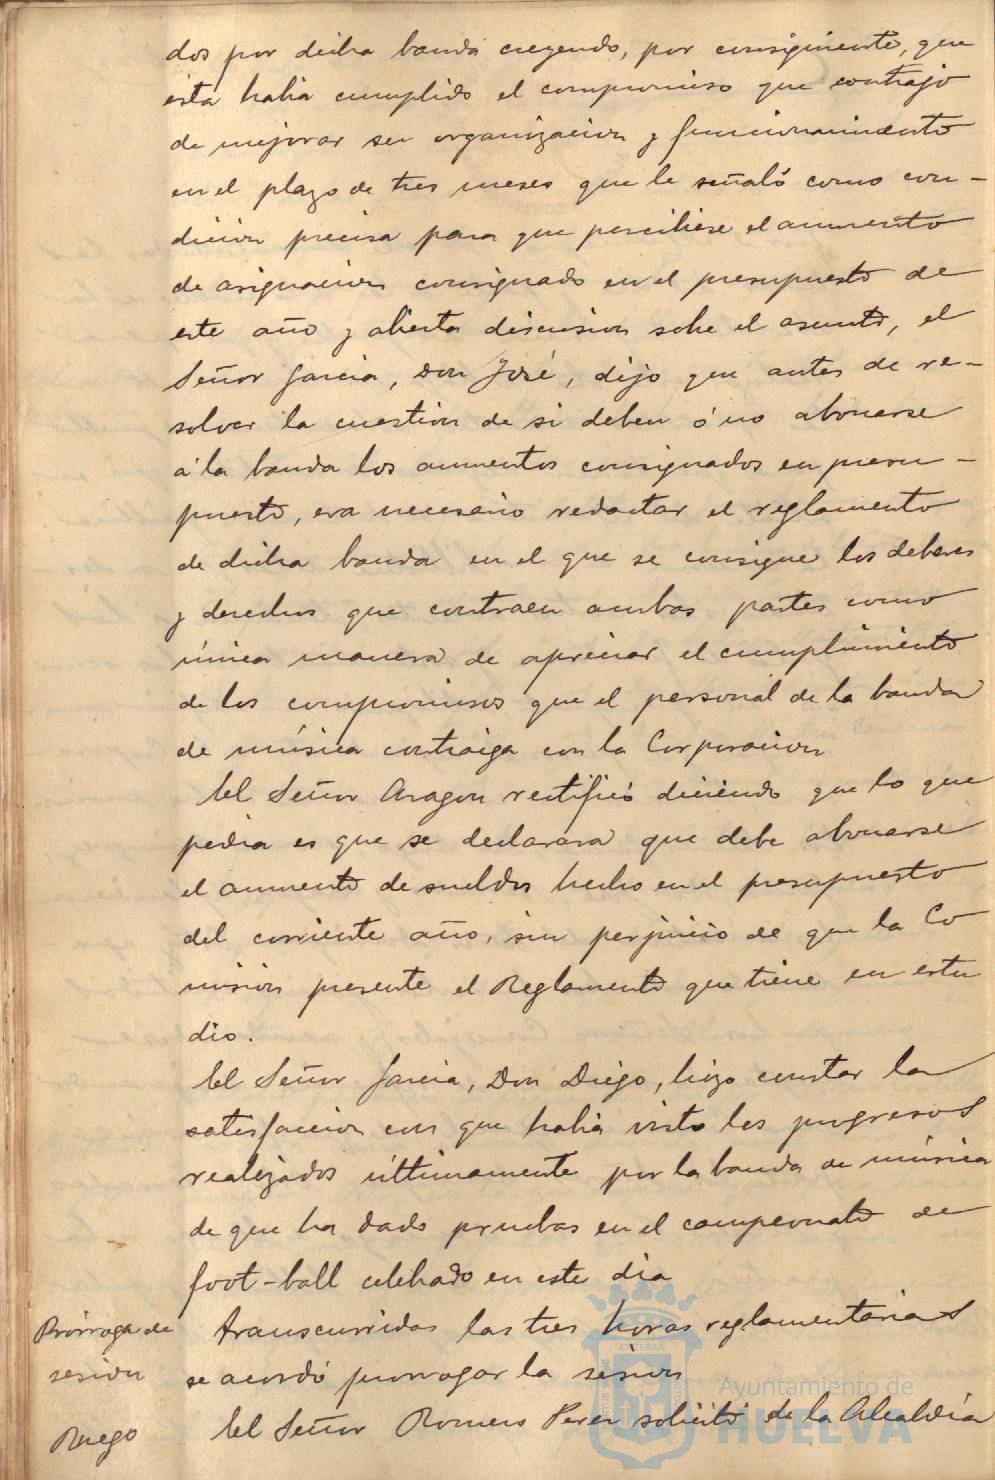 dos por dicha banda creyendo, por consiguiente, que
esta habia cumplido el compromiso que contrajo
de mejorar su organizacion y funcionamiento
en el plazo de tres meses que le señaló como con-
dicion precisa para que percibiese el aumento
de asignacion consignado en el presupuesto de
este año y abierta discusion sobre el asunto, el
Señor Garcia, Don José, dijo que antes de re-
solver la cuestion de si deben ó no abonarse
á la banda los aumentos consignados en presu-
puesto, era necesario redactar el reglamento
de dicha banda en el que se consigne los deberes
y derechos que contraen ambas partes como
única manera de apreciar el cumplimiento
de los compromisos que el personal de la banda
de música contraiga con la Corporacion
El Señor Aragon rectificó diciendo que lo que
pedia es que se declarara que debe abonarse
el aumento de sueldos hecho en el presupuesto
del corriente año, sin perjuicio de que la Co
mision presente el Reglamento que tiene en estu
dio.
El Señor Garcia, Don Diego, hizo constar la
satisfaccion con que habia visto los progresos
realizados últimamente por la banda de música
de que ha dado pruebas en el campeonato de
foot-ball celebrado en este dia
Prórroga de sesion
Transcurridas las tres horas reglamentarias
se acordó prorrogar la sesion
Ruego
El Señor Romero Perez solicitó de la Alcaldía
Ayuntamiento de
HUELVA